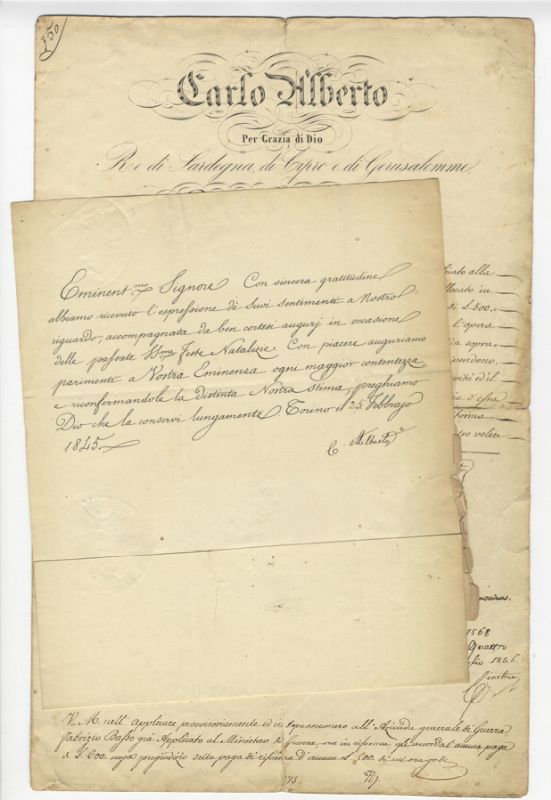 150
Carlo Alberto
Per Grazia di Dio
Re di Sardegna, di Cipro e di Gerusalemme
Eminent.mo Signore. Con sincera gratitudine
abbiamo ricevuto l'espressione di Suoi sentimenti a Nostro
riguardo, accompagnata da ben cortesi augurj in occasione
delle passate SS.me Feste Natalizie. Con piacere auguriamo
parimenti a Vostra Eminenza ogni maggior contentezza
e riconfermandole la Distinta Nostra stima, preghiamo
Dio che la conservi lungamente Torino il 25 Febbrajo
1845.
C. Alberto
alla
in
di L.300.
l'opera
sopra
ed il
d'essa
forma
voleri
1568
Quattro
1846
V. M. nell' applicare provvisoriamente ed in soprannumero all' Azienda generale di Guerra
Fabrizio Basso già Applicato al Ministero di Guerra, ora in riforma, gli accorda l'annua paga
di L. 600. pregiudizio della paga di riforma d' annue L. 300. di cui gode